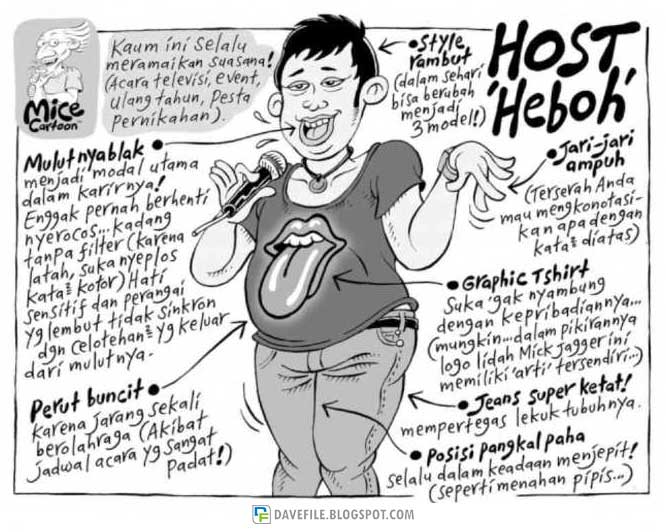 Mice
Cartoon
Kaum ini selalu
meramaikan suasana!
(Acara televisi, event,
ulang tahun, pesta
pernikahan).
HOST
'Heboh'
• Style
rambut
(dalam sehari
bisa berubah
menjadi
3 model!)
Mulut nyablak •
menjadi modal utama
dalam karirnya!
Enggak pernah berhenti
nyerocos... kadang
tanpa filter (karena
latah, suka nyeplos
kata² kotor) Hati
sensitif dan perangai
yg lembut tidak sinkron
dgn celotehan² yg keluar
dari mulutnya.
• Jari-jari
ampuh
(Terserah Anda
mau mengkonotasi-
kan apa dengan
kata² diatas)
• Graphic Tshirt
Suka 'gak nyambung
dengan kepribadiannya...
(mungkin... dalam pikirannya
logo lidah Mick Jagger ini
memiliki 'arti' tersendiri...)
Perut buncit •
karena jarang sekali
berolahraga (Akibat
jadwal acara yg sangat
padat!)
• Jeans super ketat!
mempertegas lekuk tubuhnya.
• Posisi pangkal paha
selalu dalam keadaan menjepit!
(seperti menahan pipis...)
DAVEFILE.BLOGSPOT.COM